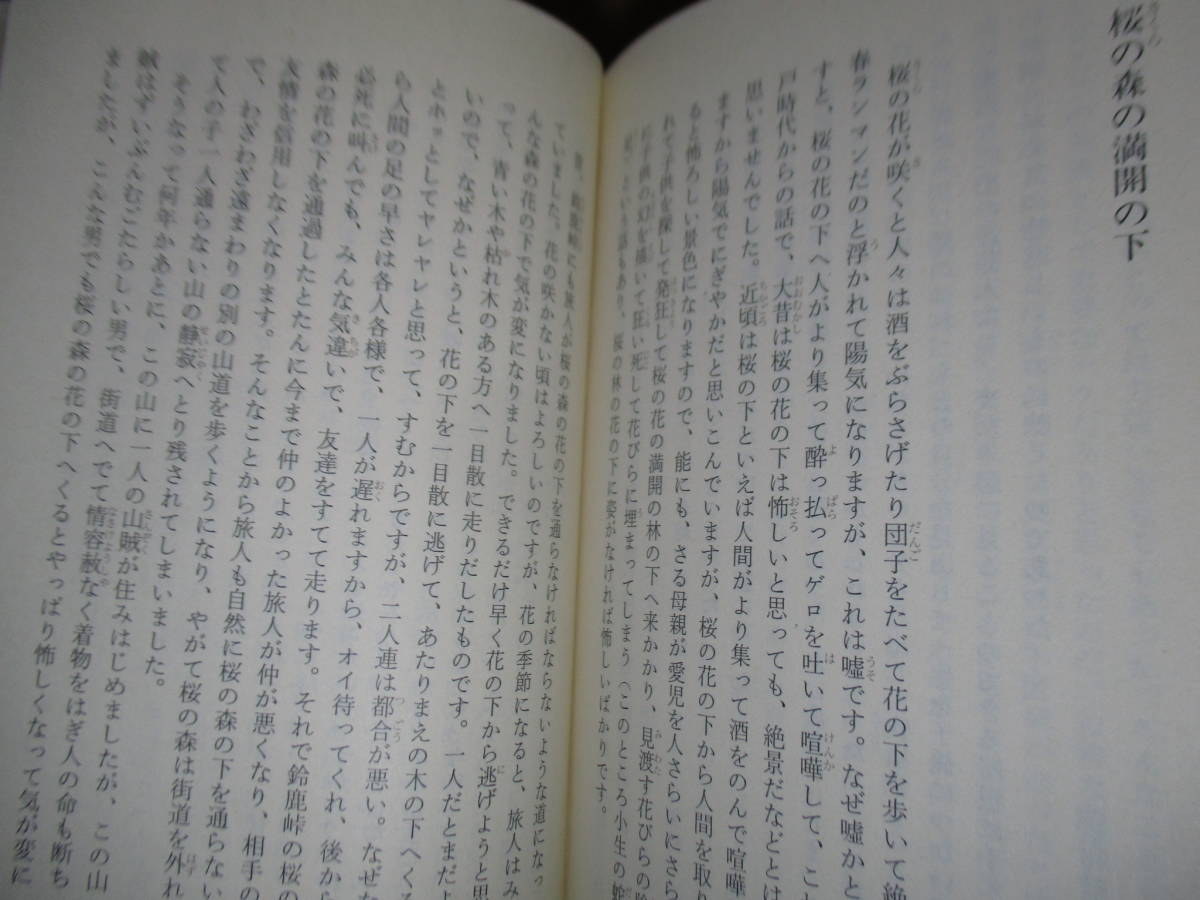 桜の森の満開の下
桜の花が咲くと人々は酒をぶらさげたり団子をたべて花の下を歩いて絶
春ランマンだのと浮かれて陽気になりますが、これは嘘です。なぜ嘘かと
すと、桜の花の下へ人がより集って酔っ払ってゲロを吐いて喧嘩して、これ
戸時代からの話で、大昔は桜の花の下は怖しいと思っても、絶景だなどとは
思いませんでした。近頃は桜の下といえば人間がより集って酒をのんで喧嘩
ますから陽気でにぎやかだと思いこんでいますが、桜の花の下から人間を取り
ると怖ろしい景色になりますので、能にも、さる母親が愛児を人さらいにさら
れて子供を探して発狂して桜の花の満開の林の下へ来かかり、見渡す花びらの陰
に子供の幻を描いて狂い死して花びらに埋まってしまう（このところ小生の蛇
足）という話もあり、桜の林の花の下に姿がなければ怖しいばかりです。
昔、鈴鹿峠にも旅人が桜の森の花の下を通らなければならないような道になっ
ていました。花の咲かない頃はよろしいのですが、花の季節になると、旅人はみ
んな森の花の下で気が変になりました。できるだけ早く花の下から逃げようと思
って、青い木や枯れ木のある方へ一目散に走りだしたものです。一人だとまだよ
いので、なぜかというと、花の下を一目散に逃げて、あたりまえの木の下へくる
とホッとしてヤレヤレと思って、すむからですが、二人連は都合が悪い。なぜな
ら人間の足の早さは各人各様で、一人が遅れますから、オイ待ってくれ、後から
必死に叫んでも、みんな気違いで、友達をすてて走ります。それで鈴鹿峠の桜の
森の花の下を通過したとたんに今まで仲のよかった旅人が仲が悪くなり、相手の
友情を信用しなくなります。そんなことから旅人も自然に桜の森の下を通らない
で、わざわざ遠まわりの別の山道を歩くようになり、やがて桜の森は街道を外れ
て人の子一人通らない山の静寂へとり残されてしまいました。
そうなって何年かあとに、この山に一人の山賊が住みはじめましたが、この山
賊はずいぶんむごたらしい男で、街道へでて情容赦なく着物をはぎ人の命も断ち
ましたが、こんな男でも桜の森の花の下へくるとやっぱり怖しくなって気が変に